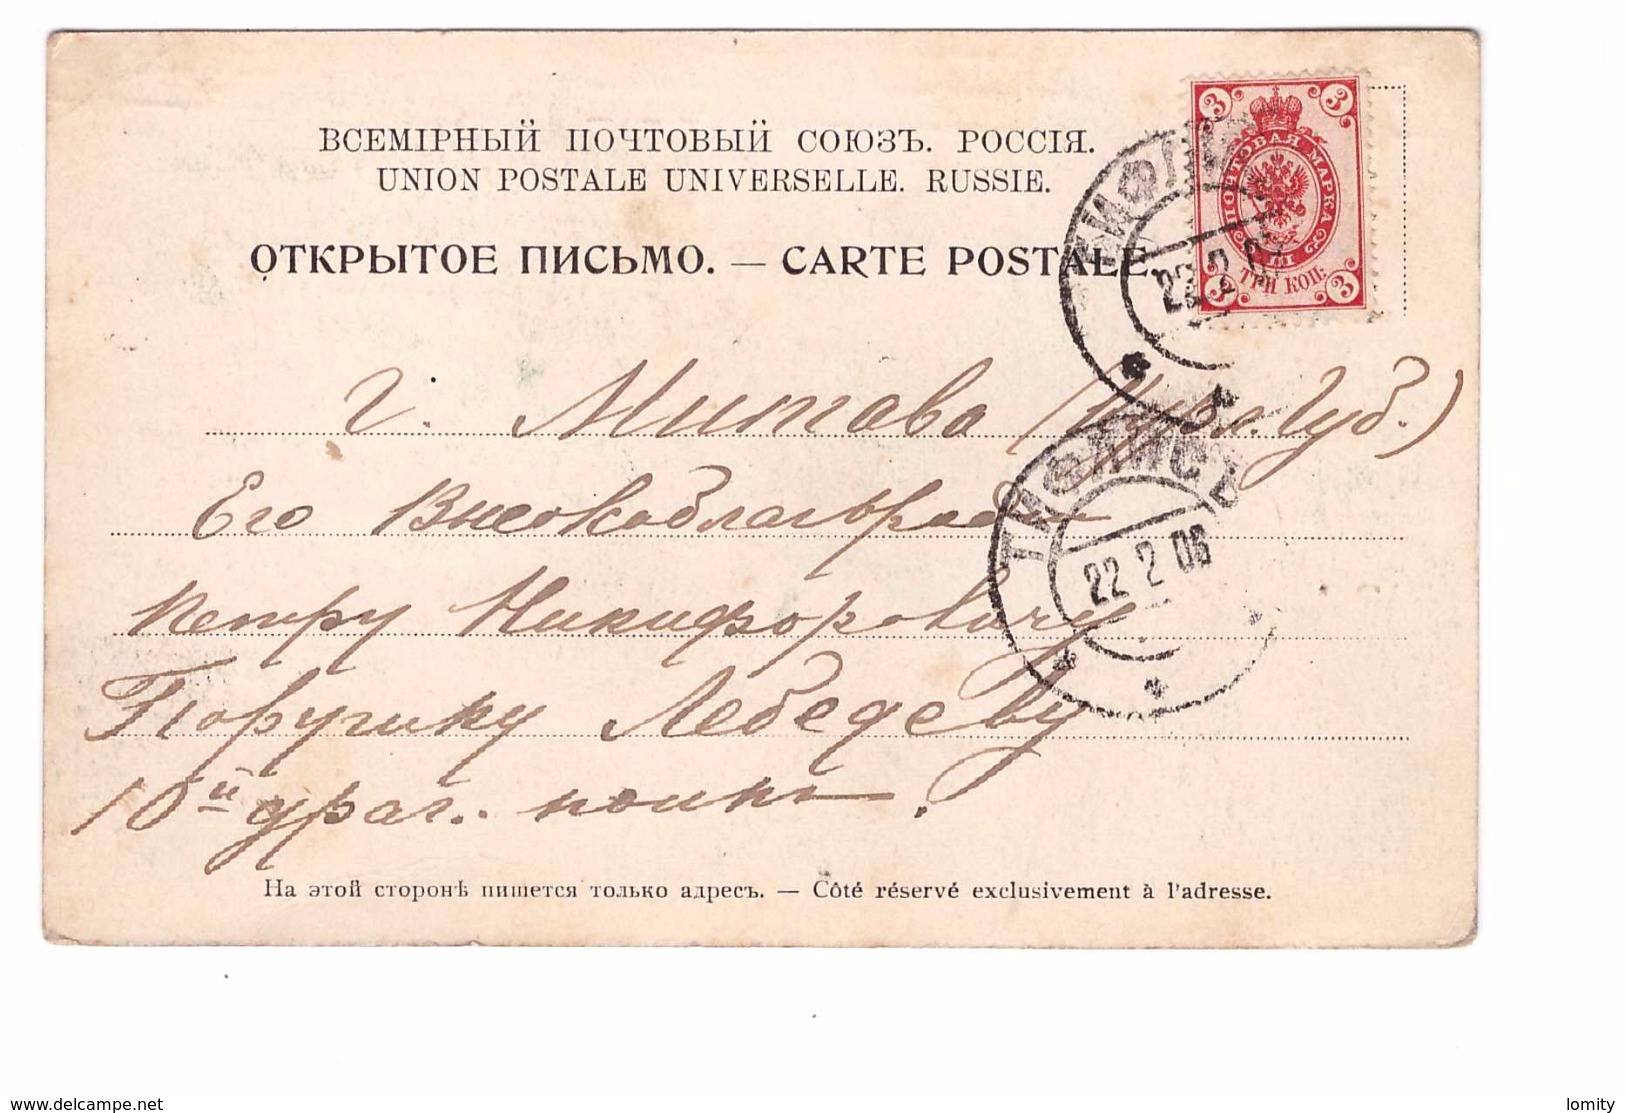 ВСЕМІРНЫЙ ПОЧТОВЫЙ СОЮЗЪ. РОССІЯ.
UNION POSTALE UNIVERSELLE. RUSSIE.
ОТКРЫТОЕ ПИСЬМО. — CARTE POSTALE.
3 3
ПОЧТОВАЯ МАРКА
ТРИ КОП:
3 3
ТИФЛИСЪ
22 2 0
г. Митава (Курл. Губ.)
ТИФЛИСЪ
22 2 06
Его Высокоблагородію
Петру Никифоровичу
Поручику Лебедеву
10й драг. полкъ.
На этой сторонѣ пишется только адресъ. — Côté réservé exclusivement à l'adresse.
www.delcampe.net
lomity